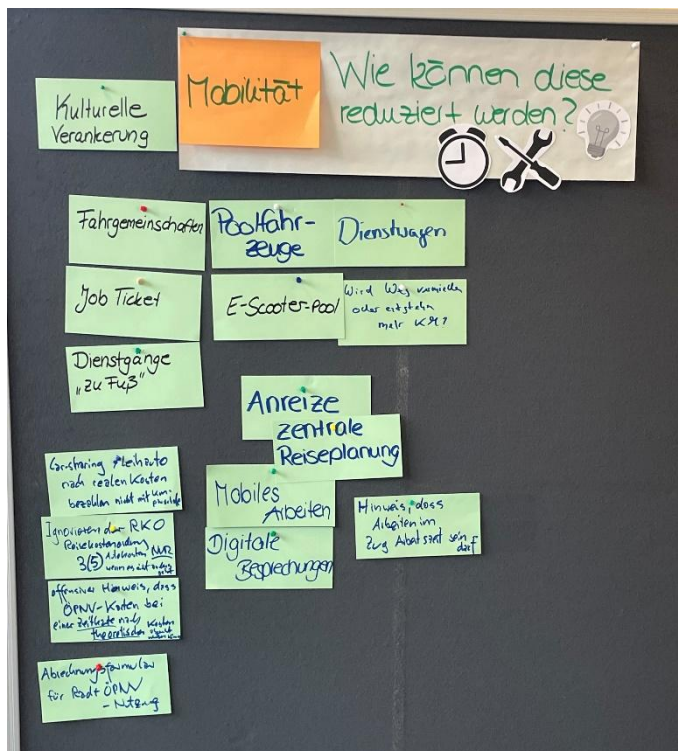 Kulturelle
Verankerung
Mobilität
Wie können diese
reduziert werden?
Fahrgemeinschaften
Poolfahr-
zeuge
Dienstwagen
Job Ticket
E-Scooter-Pool
Wird Weg vermieden
oder entstehen
mehr KM?
Dienstgänge
"zu Fuß"
Anreize
zentrale
Reiseplanung
Car-sharing Leihauto
nach realen Kosten
bezahlen nicht mit
Mobiles
Arbeiten
Hinweis, dass
Arbeiten im
Zug Arbeitszeit sein
darf
Ignorieren der RKO
Reisekostenordnung
3(5) NUR
wenn es nicht
Digitale
Besprechungen
offensiver Hinweis, dass
ÖPNV-Kosten bei
einer Zeitkarte nach
theoretischen Kosten
Abrechnungsformular
für Rad+ ÖPNV
- Nutzung